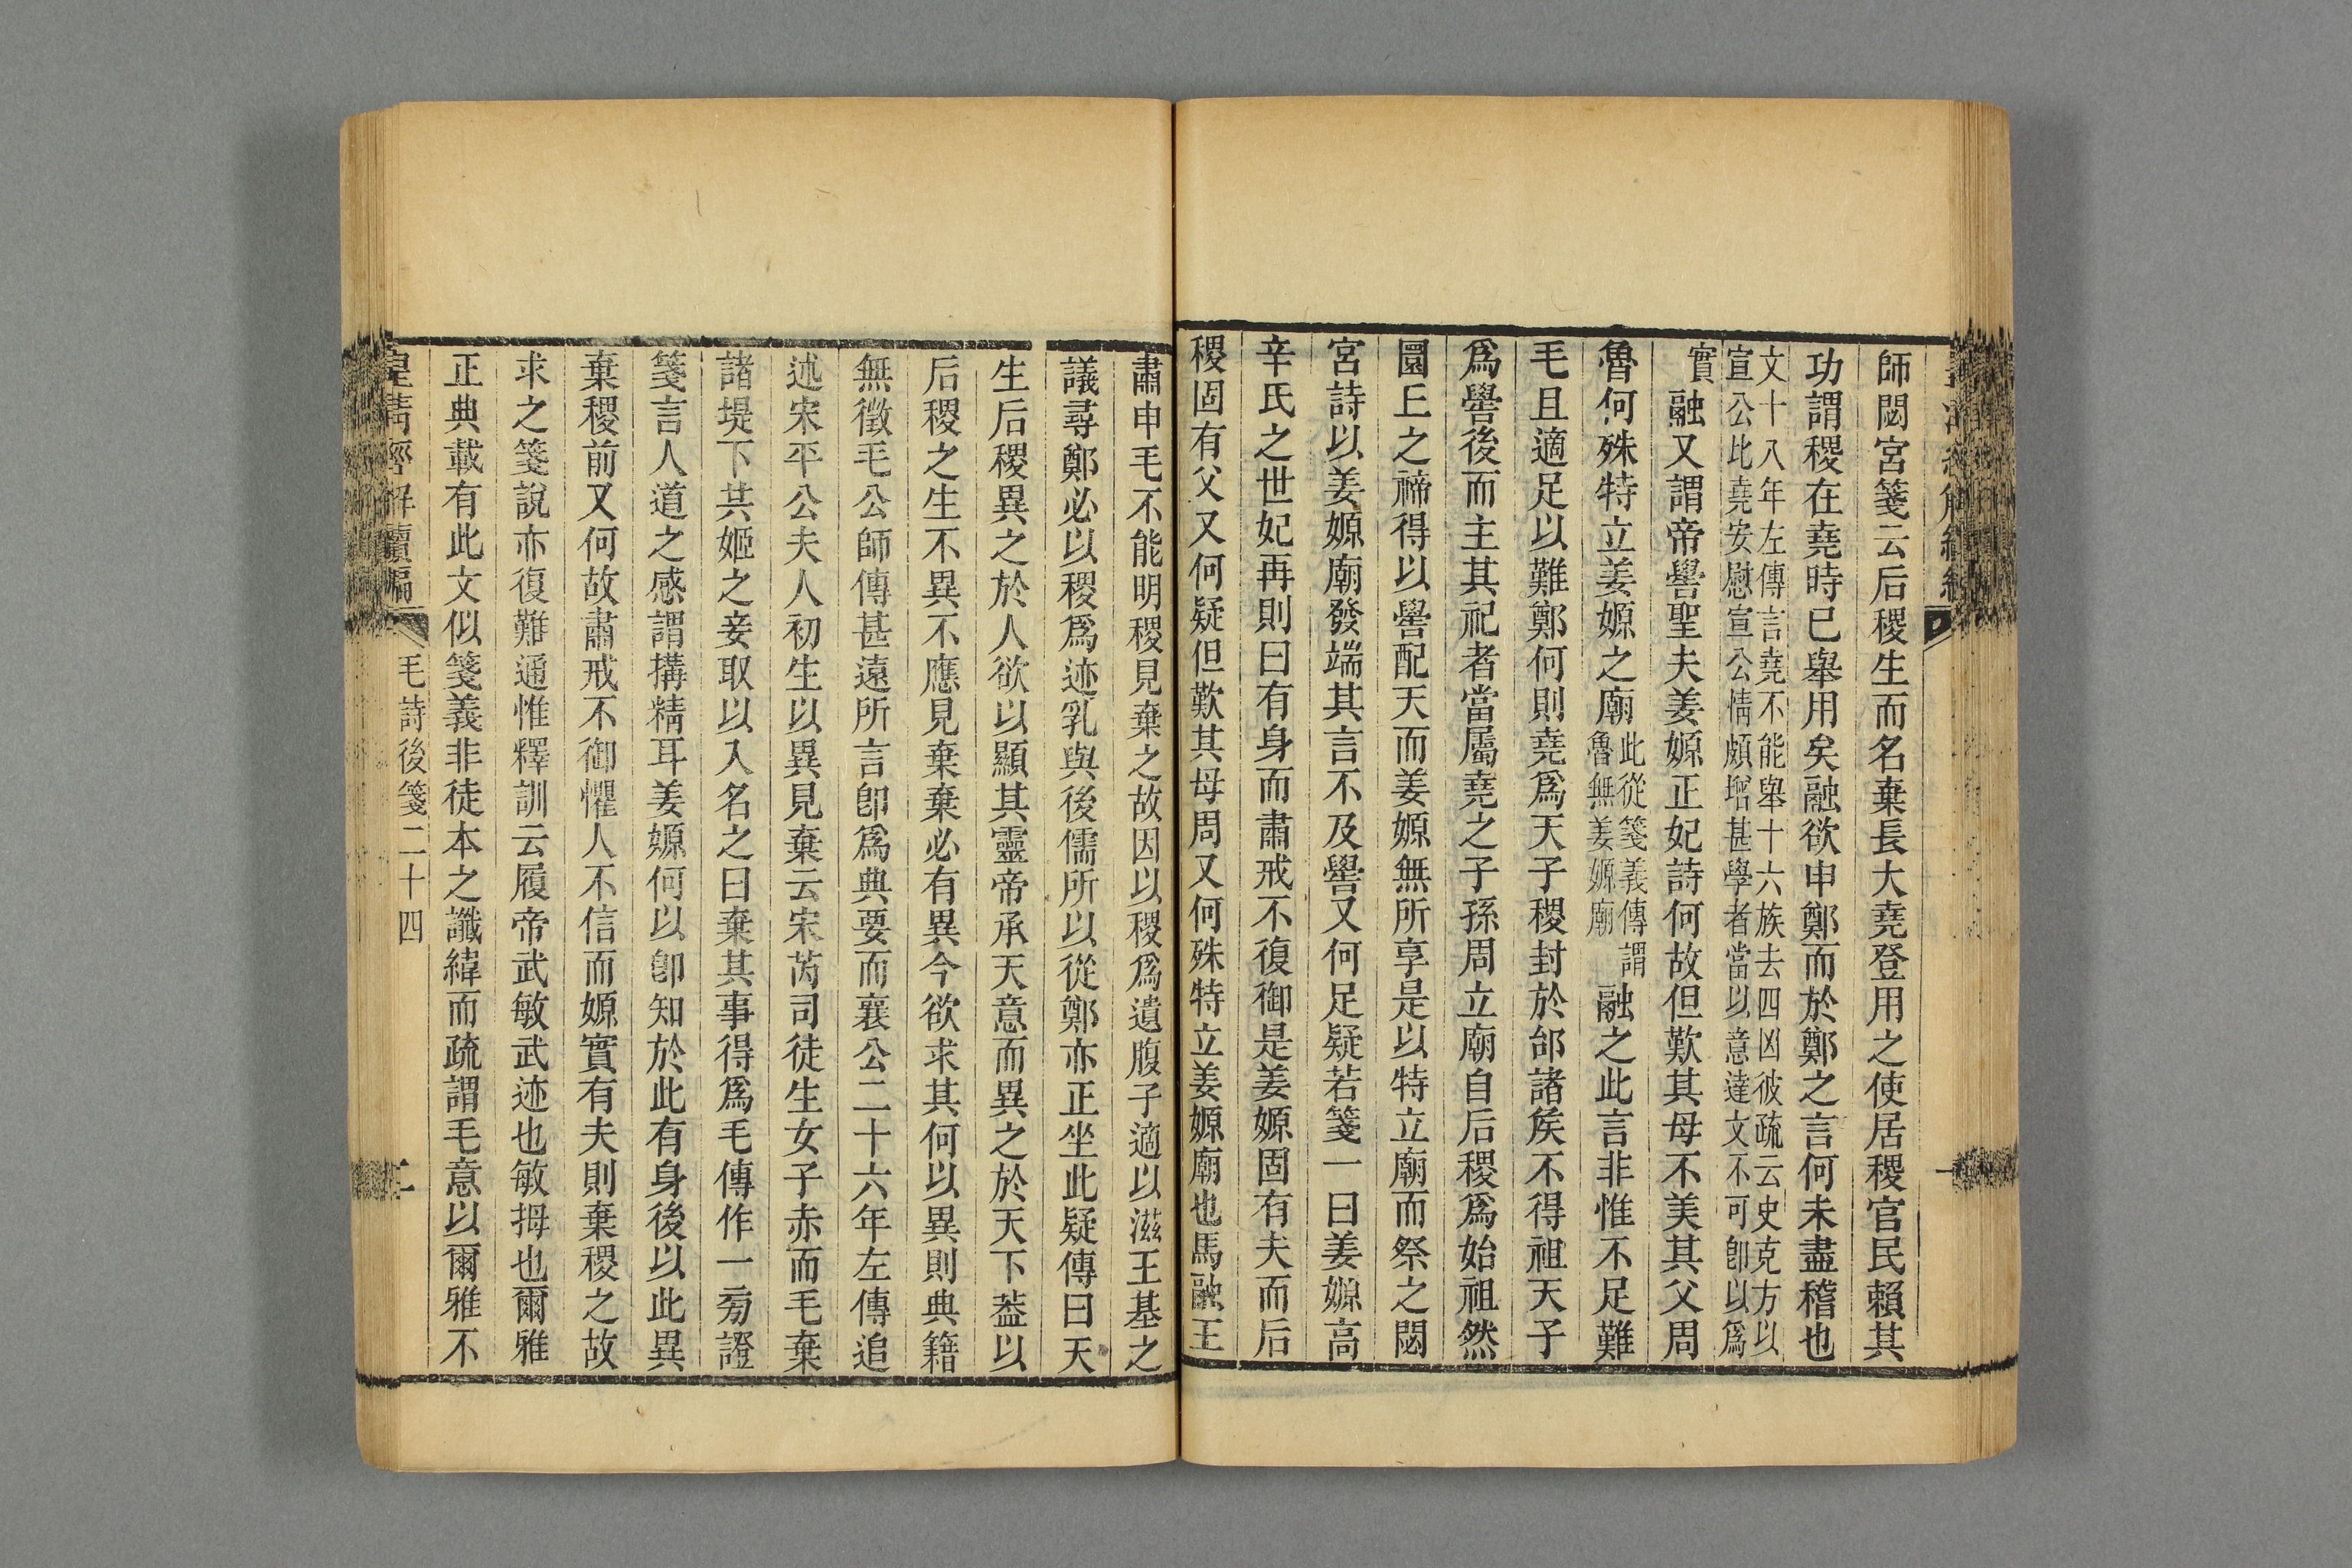 師閟宮箋云后稷生而名棄長大堯登用之使居稷官民賴其
功謂稷在堯時已舉用矣融欲申鄭而於鄭之言何未盡稽也
文十八年左傳言堯不能舉十六族去四凶彼疏云史克方以
宣公比堯安慰宣公情頗增甚學者當以意達文不可卽以爲
實
融又謂帝嚳聖夫姜嫄正妃詩何故但歎其母不美其父周
魯何殊特立姜嫄之廟
此從箋義傳謂
魯無姜嫄廟
融之此言非惟不足難
毛且適足以難鄭何則堯爲天子稷封於邰諸矦不得祖天子
爲嚳後而主其祀者當屬堯之子孫周立廟自后稷爲始祖然
圜丘之禘得以嚳配天而姜嫄無所享是以特立廟而祭之閟
宮詩以姜嫄廟發端其言不及嚳又何足疑若箋一曰姜嫄高
辛氏之世妃再則曰有身而肅戒不復御是姜嫄固有夫而后
稷固有父又何疑但歎其母周又何殊特立姜嫄廟也馬融王
肅申毛不能明稷見棄之故因以稷爲遺腹子適以滋王基之
議尋鄭必以稷爲迹乳與後儒所以從鄭亦正坐此疑傳曰天
生后稷異之於人欲以顯其靈帝承天意而異之於天下葢以
后稷之生不異不應見棄棄必有異今欲求其何以異則典籍
無徵毛公師傳甚遠所言卽爲典要而襄公二十六年左傳追
述宋平公夫人初生以異見棄云宋芮司徒生女子赤而毛棄
諸堤下共姬之妾取以入名之曰棄其事得爲毛傳作一㫄證
箋言人道之感謂搆精耳姜嫄何以卽知於此有身後以此異
棄稷前又何故肅戒不御懼人不信而嫄實有夫則棄稷之故
求之箋說亦復難通惟釋訓云履帝武敏武迹也敏拇也爾雅
正典載有此文似箋義非徒本之讖緯而疏謂毛意以爾雅不
皇清經解續編
毛詩後箋二十四